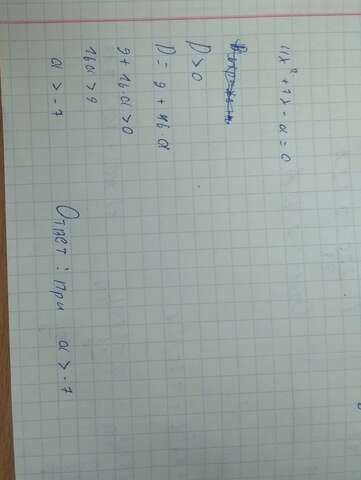 11x² + 7x - a = 0
D > 0
D = 9 + 16·a
9 + 16·a > 0
16a > 9
a > -7
Ответ: при a > -7